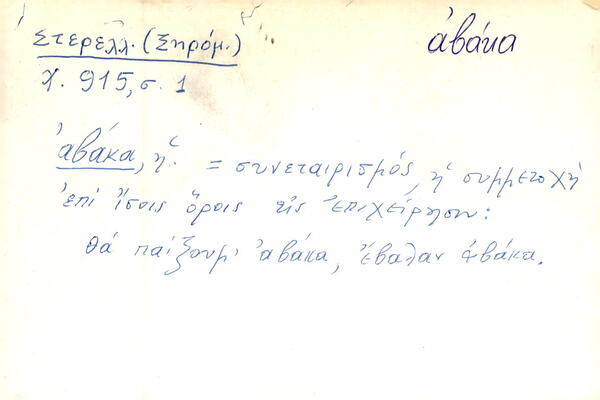 Στερελλ. (Ξηρόμ.)
ἀβάκα
χ. 915, σ. 1
ἀβάκα, ἡ = συνεταιρισμός, ἡ συμμετοχὴ
ἐπὶ ἴσοις ὅροις εἰς ἐπιχείρησιν:
θὰ παίξουμ' ἀβάκα, ἔβαλαν ἀβάκα.